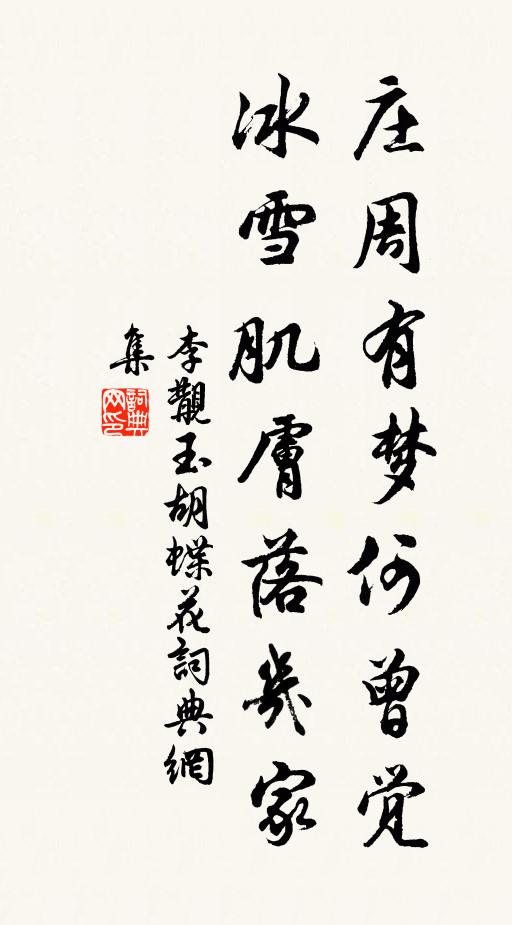 庄周有梦何曾觉
冰雪肌膚落美家
李覯玉胡蝶花詞典網
集
詞典
网印